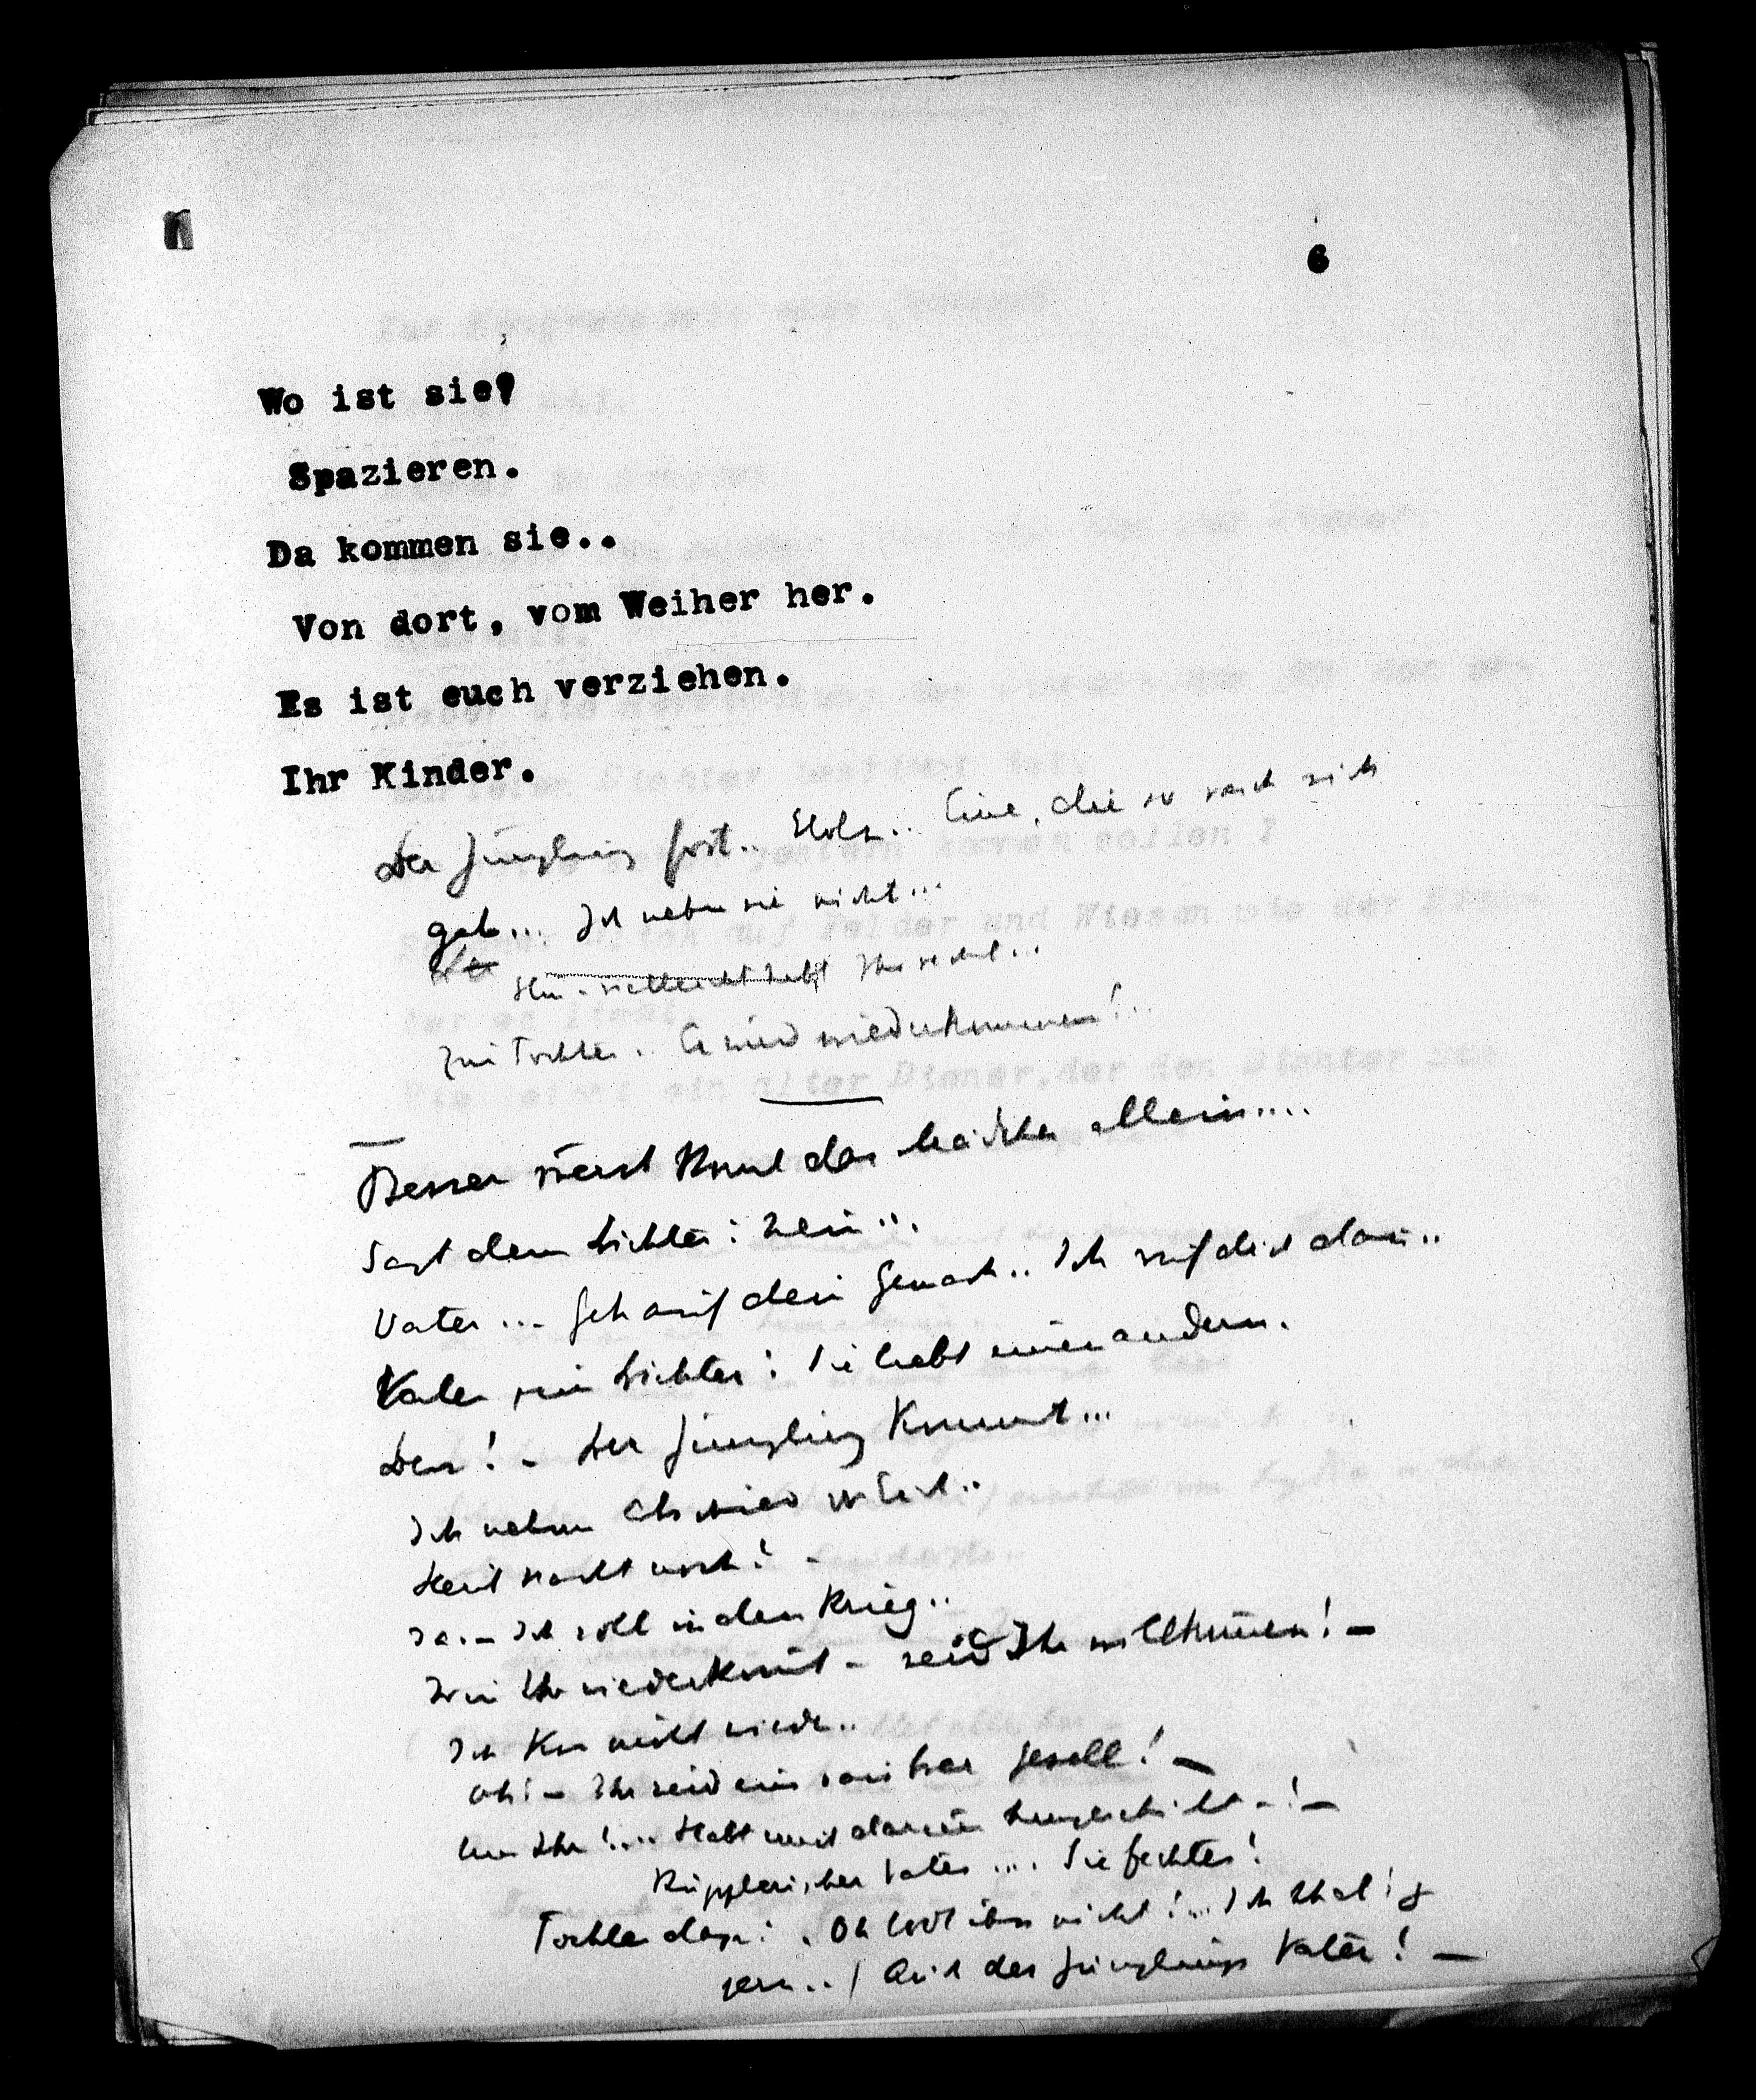 6
Wo ist sie?
Spazieren.
Da kommen sie..
Von dort, vom Weiher her.
Es ist euch verziehen.
Ihr Kinder.
Der Jüngling fort.. Stolz.. Eine, die so rasch sich
gab... Ich nehm sie nicht...
Hm - vielleicht habt Ihr recht...
Zur Tochter.. Er wird wiederkommen!..
Besser erst kommt das Mädchen allein....
Sagt dem Dichter: Nein...
Vater... Geh auf dein Gemach.. Ich ruf dich dann..
Vater zum Dichter: Sie liebt einen andern.
Den! - Der Jüngling kommt...
Ich nehm Abschied von Euch..
Heut nacht noch? -
Ja. - Ich will in den Krieg..
Wenn Ihr wiederkommt - seid Ihr willkommen! -
Ich komm nicht wieder..
Oh! - Ihr seid ein saubrer Gesell! -
Habt uns darum
Vater .... Sie fechten!
Tochter dazu: . Oh tödt ihn nicht!... Ich that's
gern../ Auch des Jünglings Vater! -